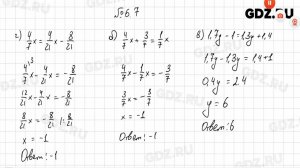 GDZ.RU
№ 6.7
а) 4/7 x = 4/21 x - 8/21
4/7 x - 4/21 x = - 8/21
12/21 x - 4/21 x = - 8/21
8/21 x = - 8/21 | : 8/21
x = -1
Ответ: -1
б) 4/7 x + 3/7 = 1/7 x
4/7 x - 1/7 x = - 3/7
3/7 x = - 3/7
x = -1
Ответ: -1
в) 1,7y - 1 = 1,3y + 1,4
1,7y - 1,3y = 1,4 + 1
0,4y = 2,4
y = 6
Ответ: 6